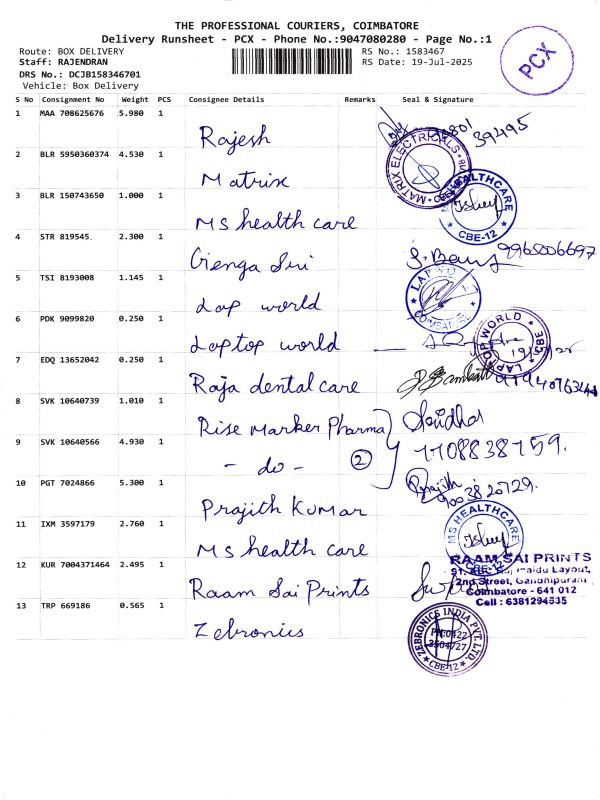 THE PROFESSIONAL COURIERS, COIMBATORE
Delivery Runsheet - PCX - Phone No.:9047080280 - Page No.:1
Route: BOX DELIVERY
Staff: RAJENDRAN
DRS No.: DCJB158346701
Vehicle: Box Delivery
RS No.: 1583467
RS Date: 19-Jul-2025
PCX
S No Consignment No Weight PCS Consignee Details Remarks Seal & Signature
1 MAA 708625676 5.980 1 Rajesh 39495
2 BLR 5950360374 4.530 1 Matrix MATRIX ELECTRICALS
3 BLR 150743650 1.000 1 MS health care HEALTHCARE CBE-12
4 STR 819545. 2.300 1 Genga Sri 9965006697
5 TSI 8193008 1.145 1 Lap world COIMBATORE
6 PDK 9099820 0.250 1 Laptop world LAPTOP WORLD CBE
7 EDQ 13652042 0.250 1 Raja dental care
8 SVK 10640739 1.010 1 Rise Marker Pharma Sridhar
9 SVK 10640566 4.930 1 - do - 2 7708838759.
10 PGT 7024866 5.300 1 Prajith Kumar Prajith
11 IXM 3597179 2.760 1 MS health care MS HEALTHCARE CBE-12
12 KUR 7004371464 2.495 1 Raam Sai Prints RAAM SAI PRINTS
Layout,
2nd Street, Gandhipuram
Coimbatore - 641 012
Cell : 6381294535
13 TRP 669186 0.565 1 Zebronics ZEBRONICS INDIA PVT. LTD. CBE-12